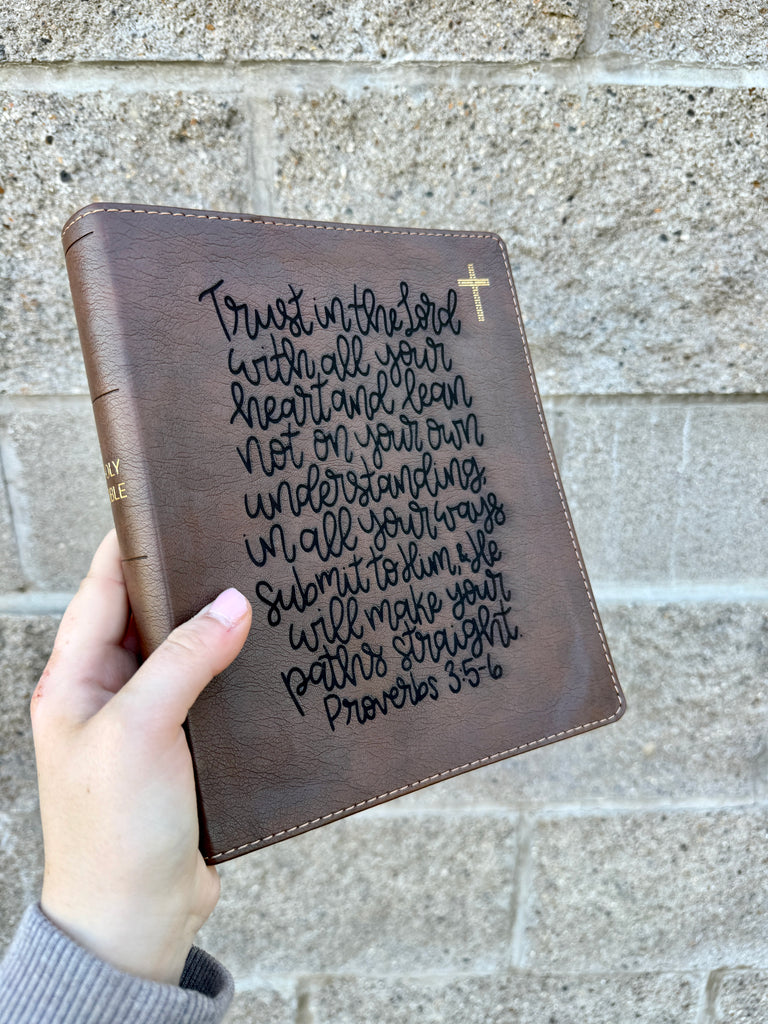 Trust in the Lord
with all your
heart and lean
not on your own
understanding,
in all your ways
submit to Him, & He
will make your
paths straight.
Proverbs 3:5-6